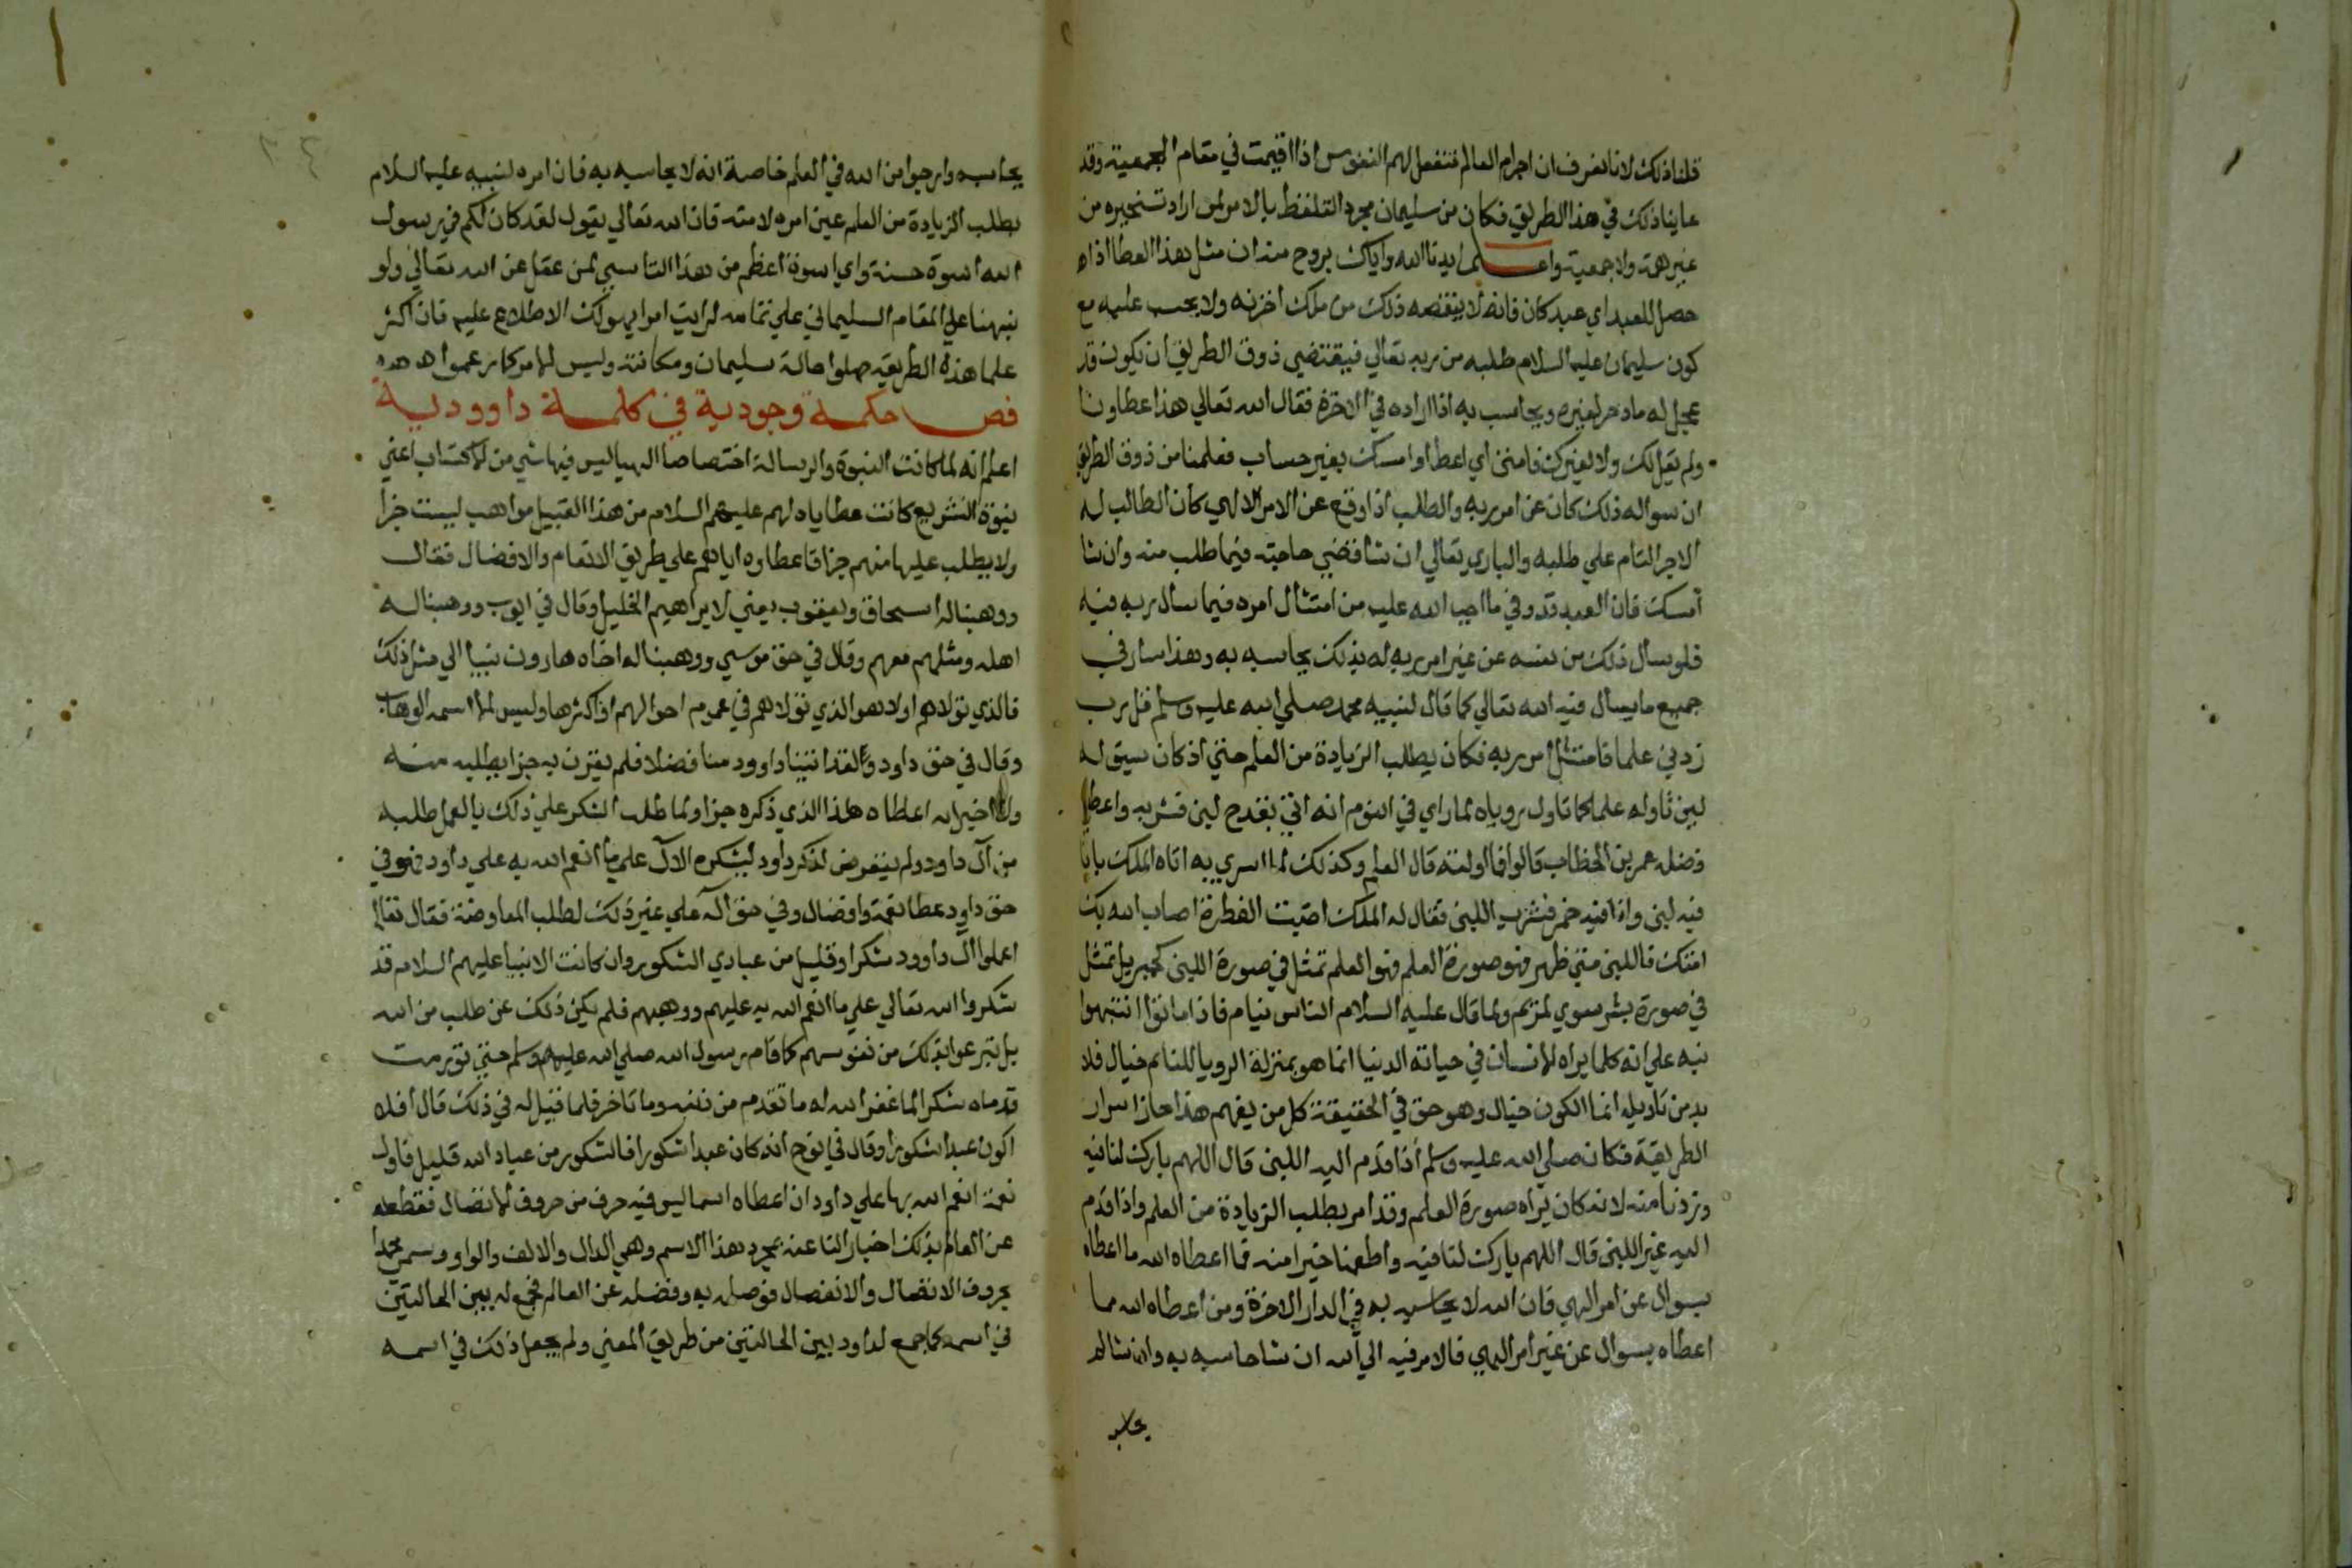 قلنا ذلك لانا نعرف ان اجرام العالم تنفعل لهم النفوس اذا اقيمت في مقام الجمعية وقد
عاينا ذلك في هذا الطريق فكان من سليمان مجرد التلفظ بالامر لمن اراد تسخيره من
غير همة ولا جمعية واعلم ايدنا الله واياك بروح منه ان مثل هذا العطا اذا
حصل للعبد اي عبد كان فانه لا ينقصه ذلك من ملك اخرته ولا يحسب عليه مع
كون سليمان عليه السلام طلبه من ربه تعالي فيقتضي ذوق الطريق ان يكون قد
عجل له ما ادخر لغيره ويحاسب به اذا اراده في الاخرة فقال الله تعالي هذا عطاونا
ولم يقل لك ولا لغيرك فامنن اي اعط او امسك بغير حساب فعلمنا من ذوق الطريق
ان سواله ذلك كان عن امر ربه والطلب اذا وقع عن الامر الالهي كان الطالب له
الاجر التام علي طلبه والباري تعالي ان شا قضي حاجته فيما طلب منه وان شا
امسك فان العبد قد وفي ما اوجب الله عليه من امتثال امره فيما سال ربه فيه
فلو سال ذلك من نفسه عن غير امر ربه له بذلك يحاسبه به وهذا سار في
جميع ما يسال فيه الله تعالي كما قال لنبيه محمد صلي الله عليه وسلم قل رب
زدني علما فامتثل امر ربه فكان يطلب الزيادة من العلم حتي اذ كان سيق له
لبن تاوله علما كما تاول روياه لما راي في النوم انه اتي بقدح لبن فشربه واعطي
فضله عمر بن الخطاب قالوا فما اولته قال العلم وكذلك لما اسري به اتاه الملك بانا
فيه لبن وانا فيه خمر فشرب اللبن فقال له الملك اصبت الفطرة اصاب الله بك
امتك فاللبن متي ظهر فهو صورة العلم فهو العلم تمثل في صورة اللبن كجبريل تمثل
في صورة بشر سوي لمريم ولما قال عليه السلام الناس نيام فاذا ماتوا انتبهوا
نبه علي انه كلما يراه الانسان في حياته الدنيا انما هو بمنزلة الرويا للنايم خيال فلا
بد من تاويله انما الكون خيال وهو حق في الحقيقة كل من يفهم هذا حاز اسرار
الطريقة فكان صلي الله عليه وسلم اذا قدم اليه اللبن قال اللهم بارك لنا فيه
وزدنا منه لانه كان يراه صورة العلم وقد امر بطلب الزيادة من العلم واذا قدم
اليه غير اللبن قال اللهم بارك لنا فيه واطعمنا خيرا منه فما اعطاه الله ما اعطاه
بسوال عن امر الهي فان الله لا يحاسبه به في الدار الاخرة ومن اعطاه الله ما
اعطاه بسوال عن غير امر الهي فالامر فيه الي الله ان شا حاسبه به وان شا لم
يحاسبه وارجوا من الله في العلم خاصة انه لا يحاسبه به فان امره لنبيه عليه السلام
بطلب الزيادة من العلم عين امره لامته فان الله تعالي يقول لقد كان لكم في رسول
الله اسوة حسنة واي اسوة اعظم من هذا التاسي لمن عقل عن الله تعالي ولو
نبهنا علي المقام السليماني علي تمامه لرايت امرا يهولك الاطلاع عليه فان اكثر
علما هذه الطريقه جهلوا حالة سليمان ومكانته وليس الامر كما زعموا
فص حكمة وجودية في كلمة داوودية
اعلم انه لما كانت النبوة والرسالة اختصاصا الهيا ليس فيها شي من الاكتساب اعني
نبوة التشريع كانت عطاياه لهم عليهم السلام من هذا القبيل مواهب ليست جزا
ولا يطلب عليها منهم جزا فاعطاوه اياهم علي طريق الانعام والافضال فقال
ووهبنا له اسحاق ويعقوب يعني لابراهيم الخليل وقال في ايوب ووهبنا له
اهله ومثلهم معهم وقال في حق موسي ووهبنا له اخاه هارون نبيا الي مثل ذلك
فالذي تولاهم اولا هو الذي تولاهم في عموم احوالهم او اكثرها وليس الا اسمه الوهاب
وقال في حق داود ولقد اتينا داوود منا فضلا فلم يقرن به جزا يطلبه منه
ولا اخبر انه اعطاه هذا الذي ذكره جزا ولما طلب الشكر علي ذلك بالعمل طلبه
من آل داود ولم يتعرض لذكر داود ليشكره الآل علي ما انعم الله به علي داود فهو في
حق داود عطا نعمة وافضال وفي حق آله علي غير ذلك لطلب المعاوضة فقال تعالي
اعملوا آل داوود شكرا وقليل من عبادي الشكور وان كانت الانبيا عليهم السلام قد
شكروا الله تعالي علي ما انعم الله به عليهم ووهبهم فلم يكن ذلك عن طلب من الله
بل تبرعوا بذلك من نفوسهم كما قام رسول الله صلي الله عليه وسلم حتي تورمت
قدماه شكرا لما غفر الله له ما تقدم من ذنبه وما تاخر فلما قيل له في ذلك قال افلا
اكون عبدا شكورا وقال في نوح انه كان عبدا شكورا فالشكور من عباد الله قليل فاول
نعمة انعم الله بها علي داود ان اعطاه اسما ليس فيه حرف من حروف الاتصال فقطعه
عن العالم بذلك اخبارا لنا عنه بمجرد هذا الاسم وهي الدال والالف والواو وسمي محمدا
بحروف الاتصال والانفصال فوصله به وفصله عن العالم فجمع له بين الحالتين
في اسمه كما جمع لداود بين الحالتين من طريق المعني ولم يجعل ذلك في اسمه